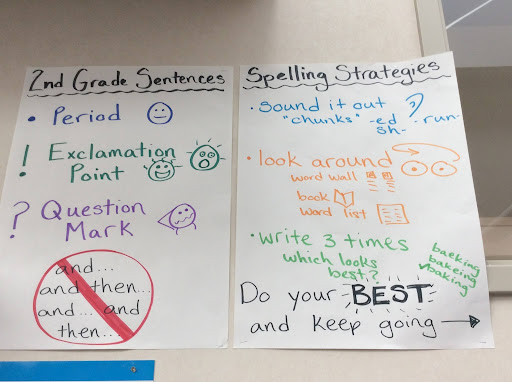 2nd Grade Sentences
• Period
! Exclamation
Point
? Question
Mark
and...
and then...
and... and
then...
Spelling Strategies
• Sound it out
"chunks" -ed -run-
sh-
• look around
word wall
book
word list
• write 3 times
which looks
best?
baeking
bakeing
✓baking
Do your BEST
and keep going →